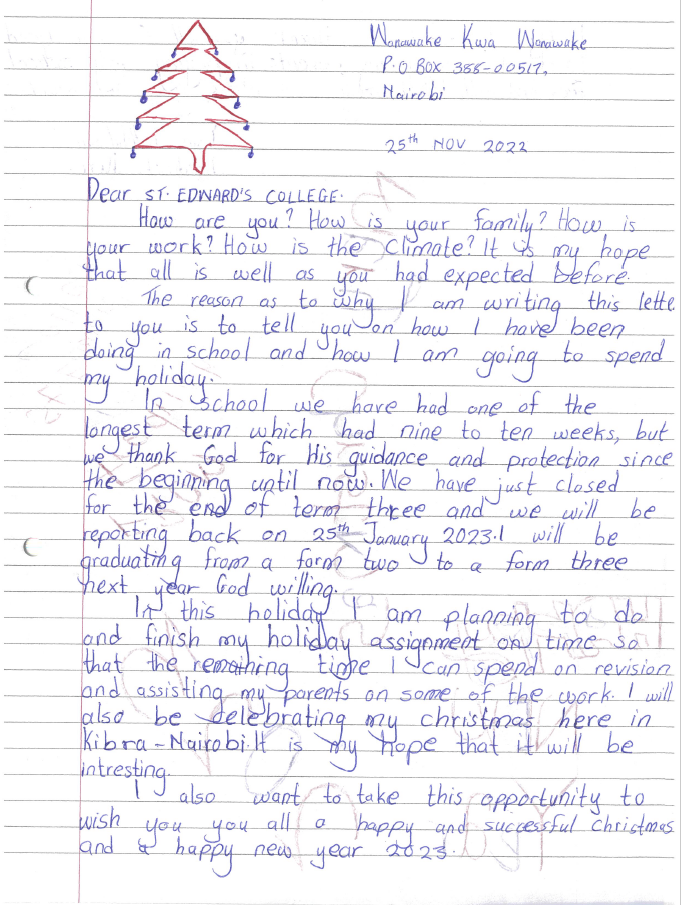 Wanawake Kwa Wanawake
P.O BOX 388-00517,
Nairobi
25th NOV 2022
Dear ST. EDWARD'S COLLEGE.
How are you? How is your family? How is
your work? How is the climate? It is my hope
that all is well as you had expected before.
The reason as to why I am writing this lette
to you is to tell you on how I have been
doing in school and how I am going to spend
my holiday.
In school we have had one of the
longest term which had nine to ten weeks, but
we thank God for His guidance and protection since
the beginning until now. We have just closed
for the end of term three and we will be
reporting back on 25th January 2023.I will be
graduating from a form two to a form three
next year God willing.
In this holiday I am planning to do
and finish my holiday assignment on time so
that the remaining time I can spend on revision
and assisting my parents on some of the work. I will
also be celebrating my christmas here in
Kibra-Nairobi.It is my hope that it will be
intresting.
I also want to take this opportunity to
wish you you all a happy and successful christmas
and a happy new year 2023.